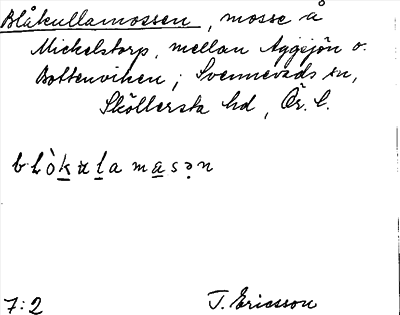 Blåkullamossen, mosse å
Mickelstorp, mellan Aggsjön o.
Bottenviken; Svennevads sn,
Sköllersta hd, Ör. l.
blòkulamasən
7:2 T. Ericsson